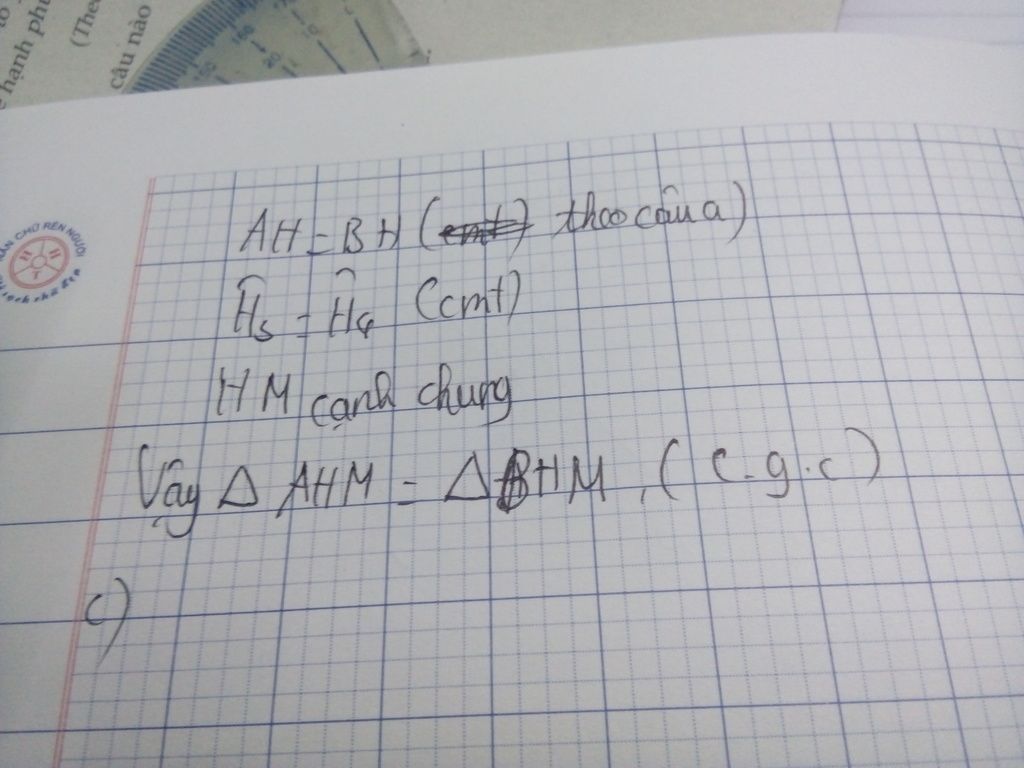 hanh phú
(The
câu nào
RÈN CHỮ RÈN NGƯỜI
AH = BH (cmt) theo câu a)
Ĥ₃ = Ĥ₄ (cmt)
HM cạnh chung
Vậy Δ AHM = Δ BHM. (c.g.c)
c)